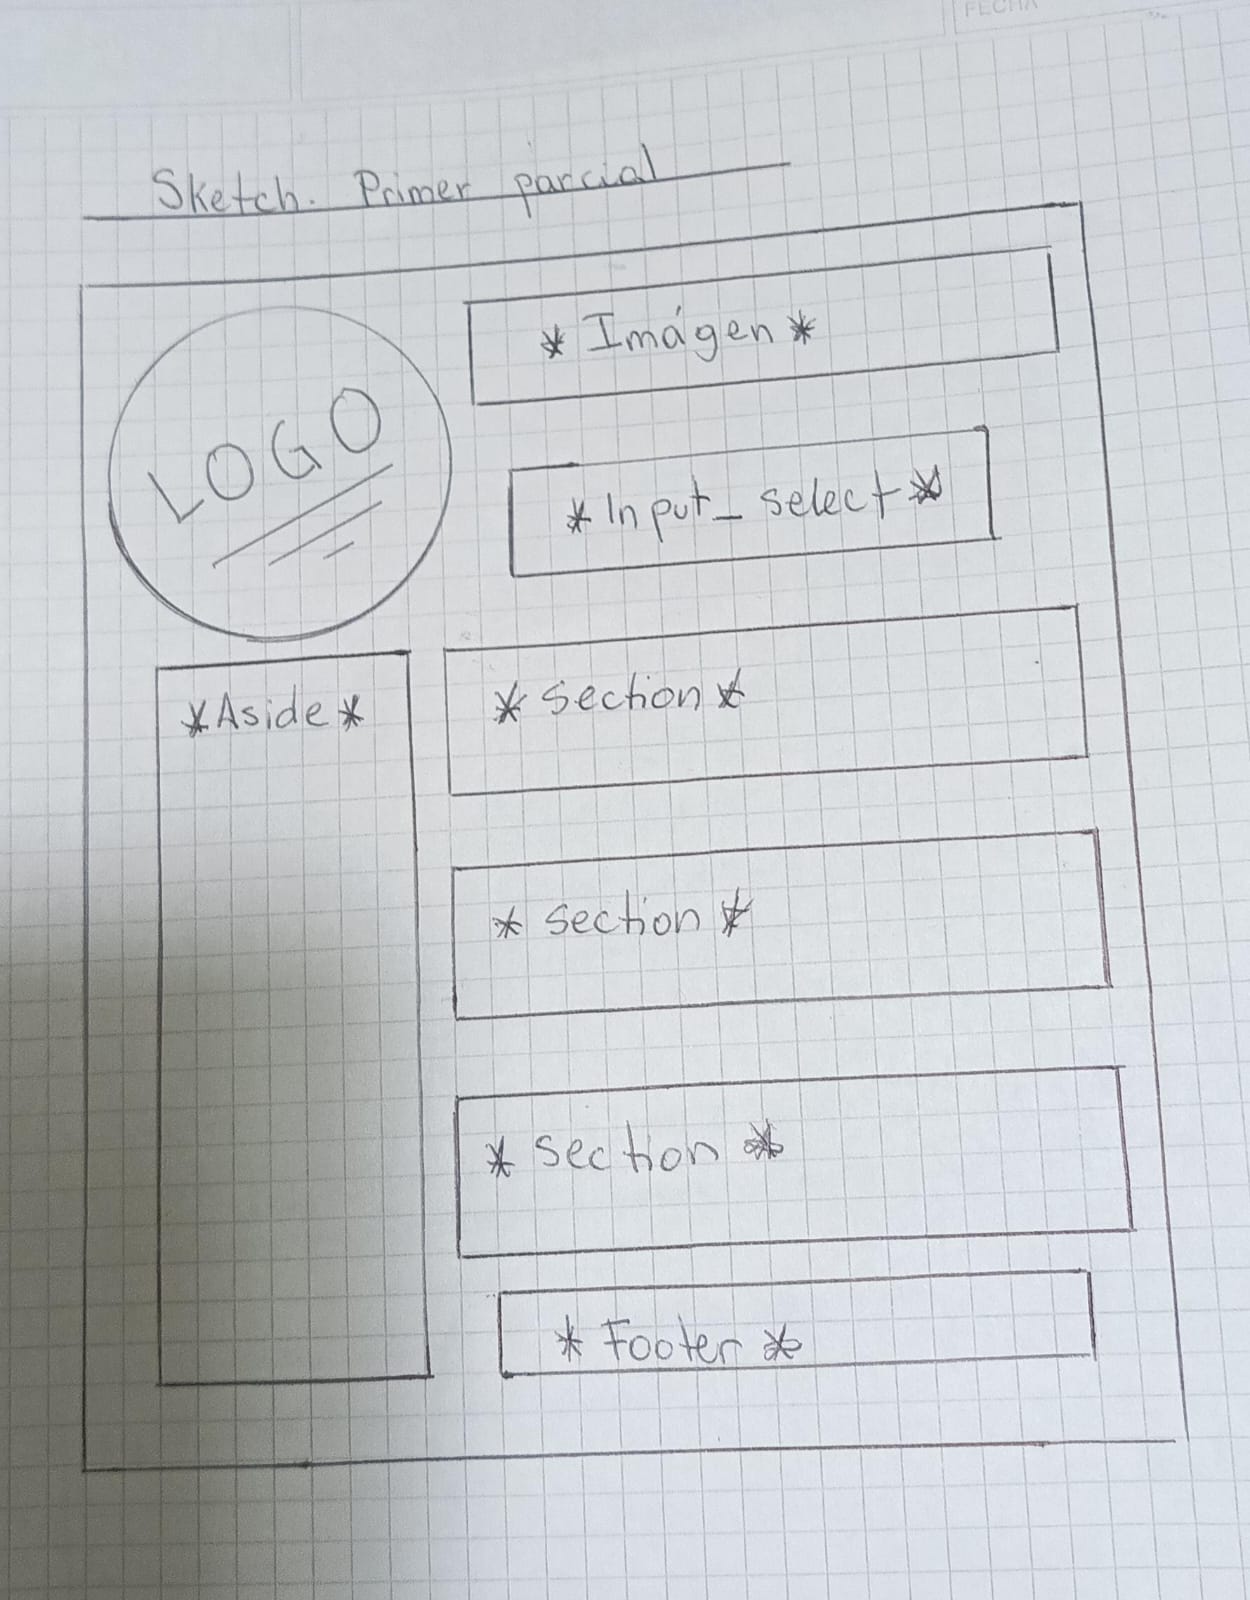 FECHA
Sketch. Primer parcial
LOGO
* Imágen *
* Input_ select *
* Aside *
* section *
* section *
* section *
* Footer *